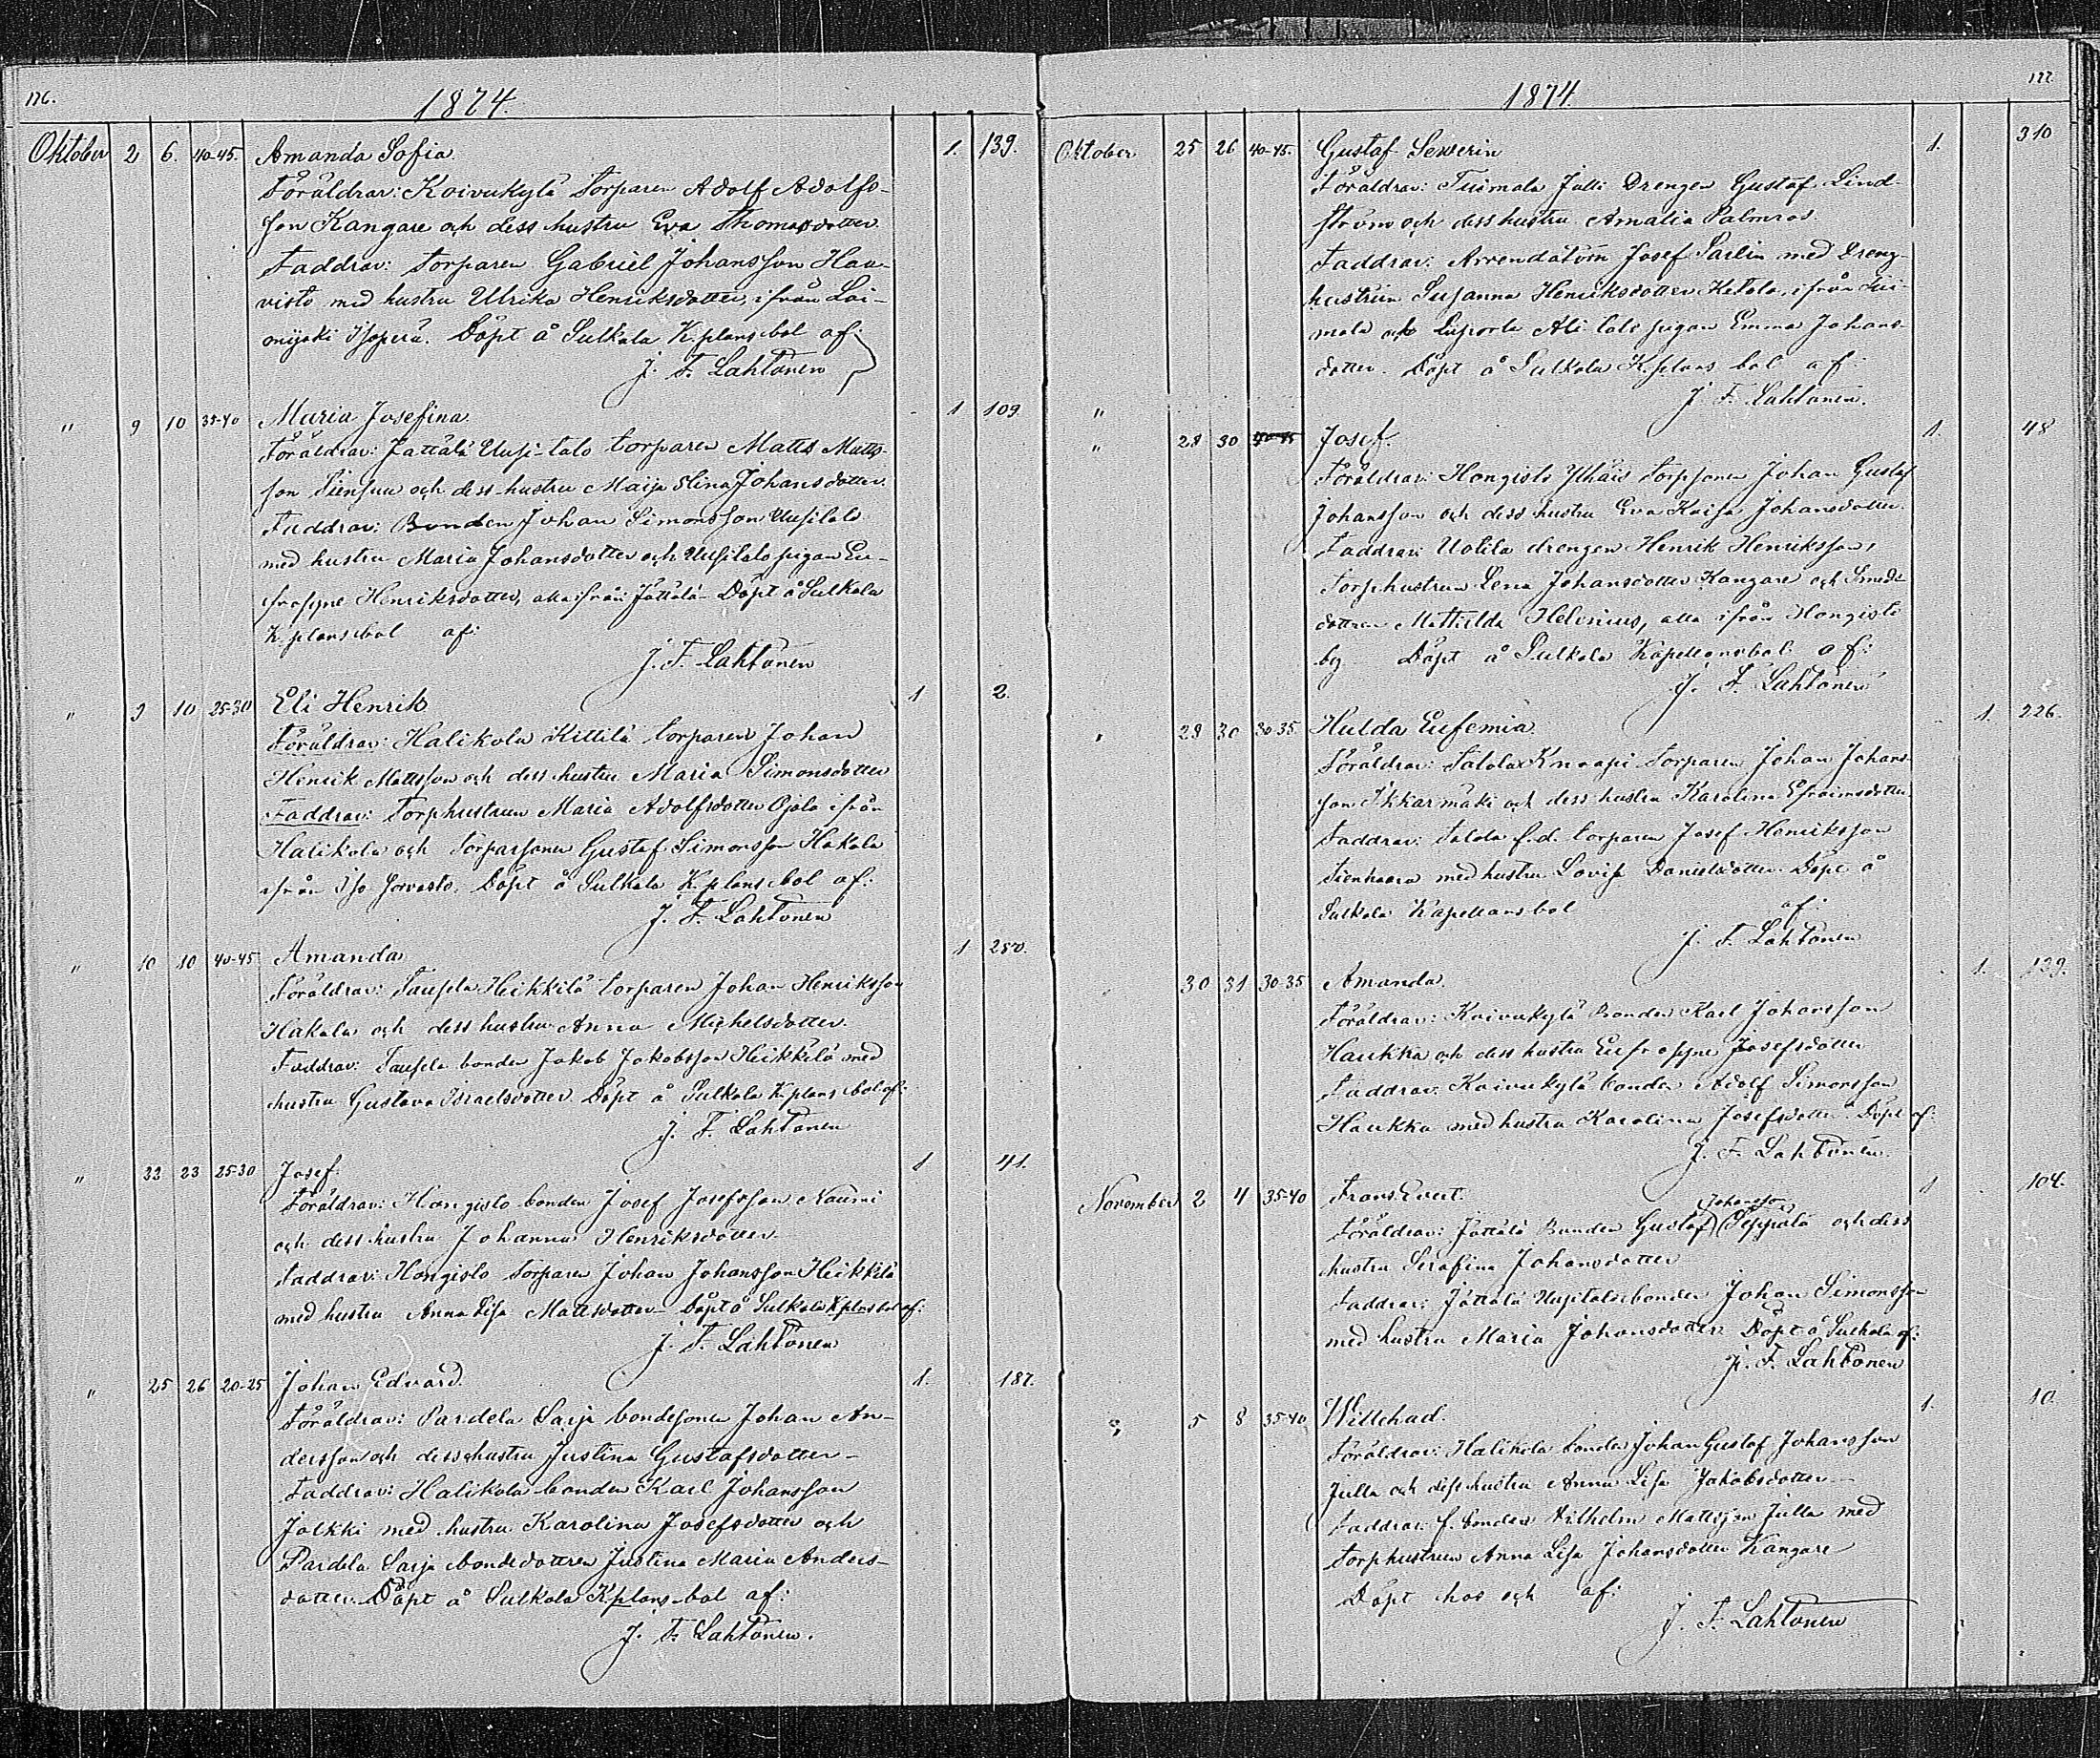 176.
1874.
Oktober 2 6. 40-45. Amanda Sofia. 1. 139.
Föräldrar: Koivukylä torparen Adolf Adolfs-
son Kangare och dess hustru Eva Thomasdotter
Faddrar: torparen Gabriel Johansson Hau-
visto med hustru Ulrika Henriksdotter, ifrån Loi-
mijoki Isoperä. Döpt å Sulkala K.plansbol af:
J. F. Lahtonen
" 9 10 35-40 Maria Josefina. 1 109.
Föräldrar: Jättälä Uusi-talo torparen Matts Matts-
son Siensuu och dess hustru Maija Stina Johansdotter.
Faddrar: Bonden Johan Simonsson Uusitalo
med hustru Maria Johansdotter och Uusitalo pigan Eu-
frosyne Henriksdotter, alla ifrån Jättälä. Döpt å Sulkala
K.plansbol af:
J. F. Lahtonen
" 9 10 25-30 Eli Henrik 1 2.
Föräldrar: Halikola Kittilä torparen Johan
Henrik Mattsson och dess hustru Maria Simonsdotter
Faddrar: torphustrun Maria Adolfsdotter Ojala ifrån
Halikola och torparsonen Gustaf Simonsson Hakala
ifrån Iso Sorvasto. Döpt å Sulkala K.plansbol af:
J. F. Lahtonen
" 10 10 40-45 Amanda 1 250.
Föräldrar: Heikkilä torparen Johan Henriksson
Hakala och dess hustru Anna Michelsdotter.
Faddrar: bonden Jakob Jakobsson Heikkilä med
hustru Gustava Israelsdotter. Döpt å Sulkala K.plansbol af:
J. F. Lahtonen
" 22 23 25-30 Josef. 1 41.
Föräldrar: Hongisto bonden Josef Josefsson Naumi
och dess hustru Johanna Henriksdotter.
Faddrar: Hongisto torparen Johan Johansson Heikkilä
med hustru Anna Lisa Mattsdotter. Döpt å Sulkala K.plansbol af:
J. F. Lahtonen
" 25 26 20-25 Johan Edvard. 1. 187.
Föräldrar: Pardela Sarja bondesonen Johan An-
dersson och dess hustru Justina Gustafsdotter-
Faddrar: Halikola bonden Karl Johansson
Jolkki med hustru Karolina Josefsdotter och
Pardela Sarja bondedottren Justina Maria Anders-
dotter. Döpt å Sulkala K.plans-bol af:
J. F. Lahtonen.
177.
1874.
Oktober 25 26 40-45. Gustaf Severin 1. 310
Föräldrar: Tuimala Julli Drengen Gustaf Lind-
ström och dess hustru Amalia Palmros
Faddrar: Arrendatorn Josef Sarlin med Dreng-
hustrun Susanna Henriksdotter Ketola, ifrån Tui-
mala och Ali talo pigan Emma Johans-
dotter. Döpt å Sulkala K.plans bol af:
J. F. Lahtonen.
"
" 28 30 40-45 Josef. 1. 48
Föräldrar: Hongisto torpsonen Johan Gustaf
Johansson och dess hustru Eva Kaisa Johansdotter.
Faddrar: Uotila drengen Henrik Henriksson,
torphustrun Lena Johansdotter Kangare och Smeds-
dottren Mathilda Helenius, alla ifrån Hongisto
by. Döpt å Sulkala Kapellansbol af:
J. F. Lahtonen
" 29 30 30-35 Hulda Eufemia. 1. 226.
Föräldrar: Talola Knaapi torparen Johan Johans-
son Ikkarmäki och dess hustru Karolina Efraimsdotter
Faddrar: Talola f.d. torparen Josef Henriksson
Sienhaara med hustru Lovisa Danielsdotter. Döpt å
Sulkala Kapellansbol af:
J. F. Lahtonen
30 31 30-35 Amanda. 1. 139.
Föräldrar: Koivukylä bonden Karl Johansson
Haukka och dess hustru Eufrosyne Josefsdotter
Faddrar: Koivukylä bonden Adolf Simonsson
Haukka med hustru Karolina Josefsdotter. Döpt af:
J. F. Lahtonen.
November 2 4 35-40 Frans Evert. 1 104.
Johansson
Föräldrar: Jättälä Bonden Gustaf Seppälä och dess
hustru Serafina Johansdotter
Faddrar: Jättälä Uusitalo bonden Johan Simonsson
med hustru Maria Johansdotter. Döpt å Sulkala af:
J. F. Lahtonen
" 5 8 35-40 Willehad. 1. 10.
Föräldrar: Halikola bonden Johan Gustaf Johansson
Julla och dess hustru Anna Lisa Jakobsdotter-
Faddrar: f. bonden Vilhelm Mattsson Julla med
torphustrun Anna Lisa Johansdotter Kangare
Döpt hos och af:
J. F. Lahtonen